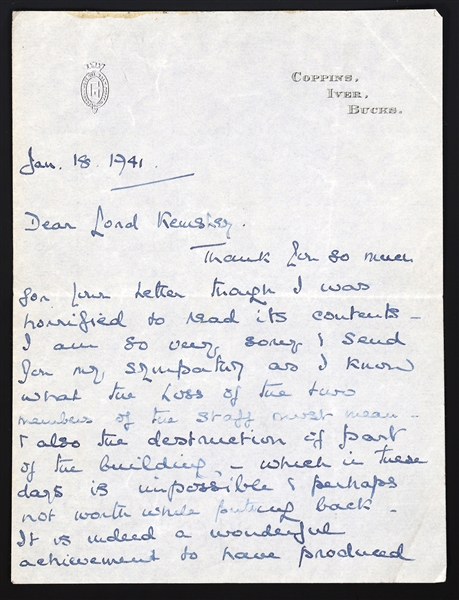 COPPINS,
IVER,
BUCKS.
Jan. 18. 1941.
Dear Lord Kemsley.
Thank you so much
for your letter though I was
horrified to read its contents –
I am so very sorry & send
you my sympathy as I know
what the loss of the two
members of the staff must mean –
& also the destruction of part
of the building, – which in these
days is impossible & perhaps
not worth while putting back –
It is indeed a wonderful
achievement to have produced